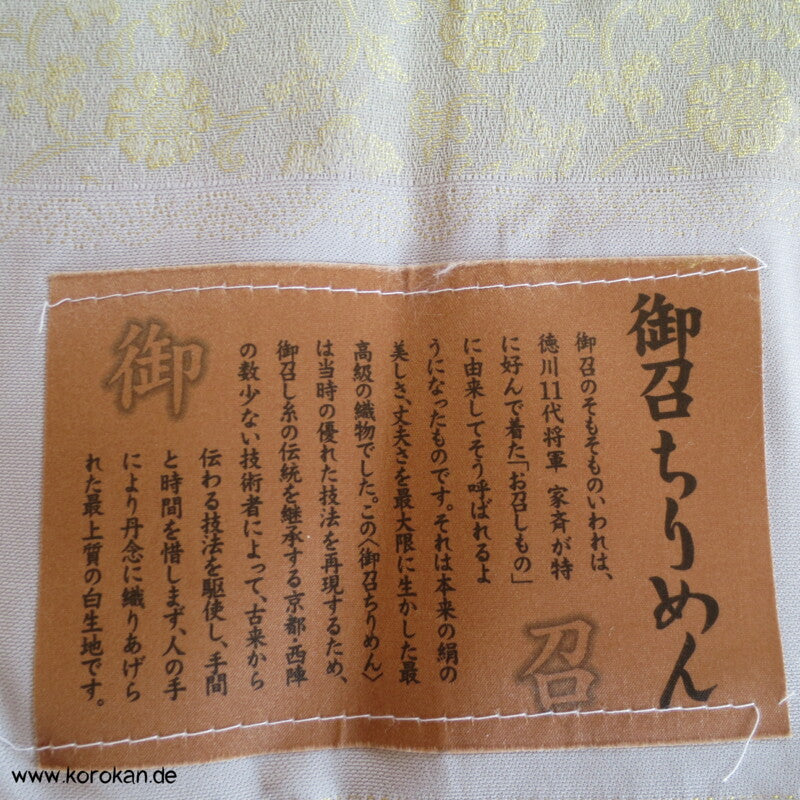 御召ちりめん
御召のそもそものいわれは、
徳川11代将軍 家斉が特
に好んで着た「お召しもの」
に由来してそう呼ばれるよ
うになったものです。それは本来の絹の
美しさ、丈夫さを最大限に生かした最
高級の織物でした。この〈御召ちりめん〉
は当時の優れた技法を再現するため、
御召し糸の伝統を継承する京都・西陣
の数少ない技術者によって、古来から
伝わる技法を駆使し、手間
と時間を惜しまず、人の手
により丹念に織りあげら
れた最上質の白生地です。
召
御
www.korokan.de